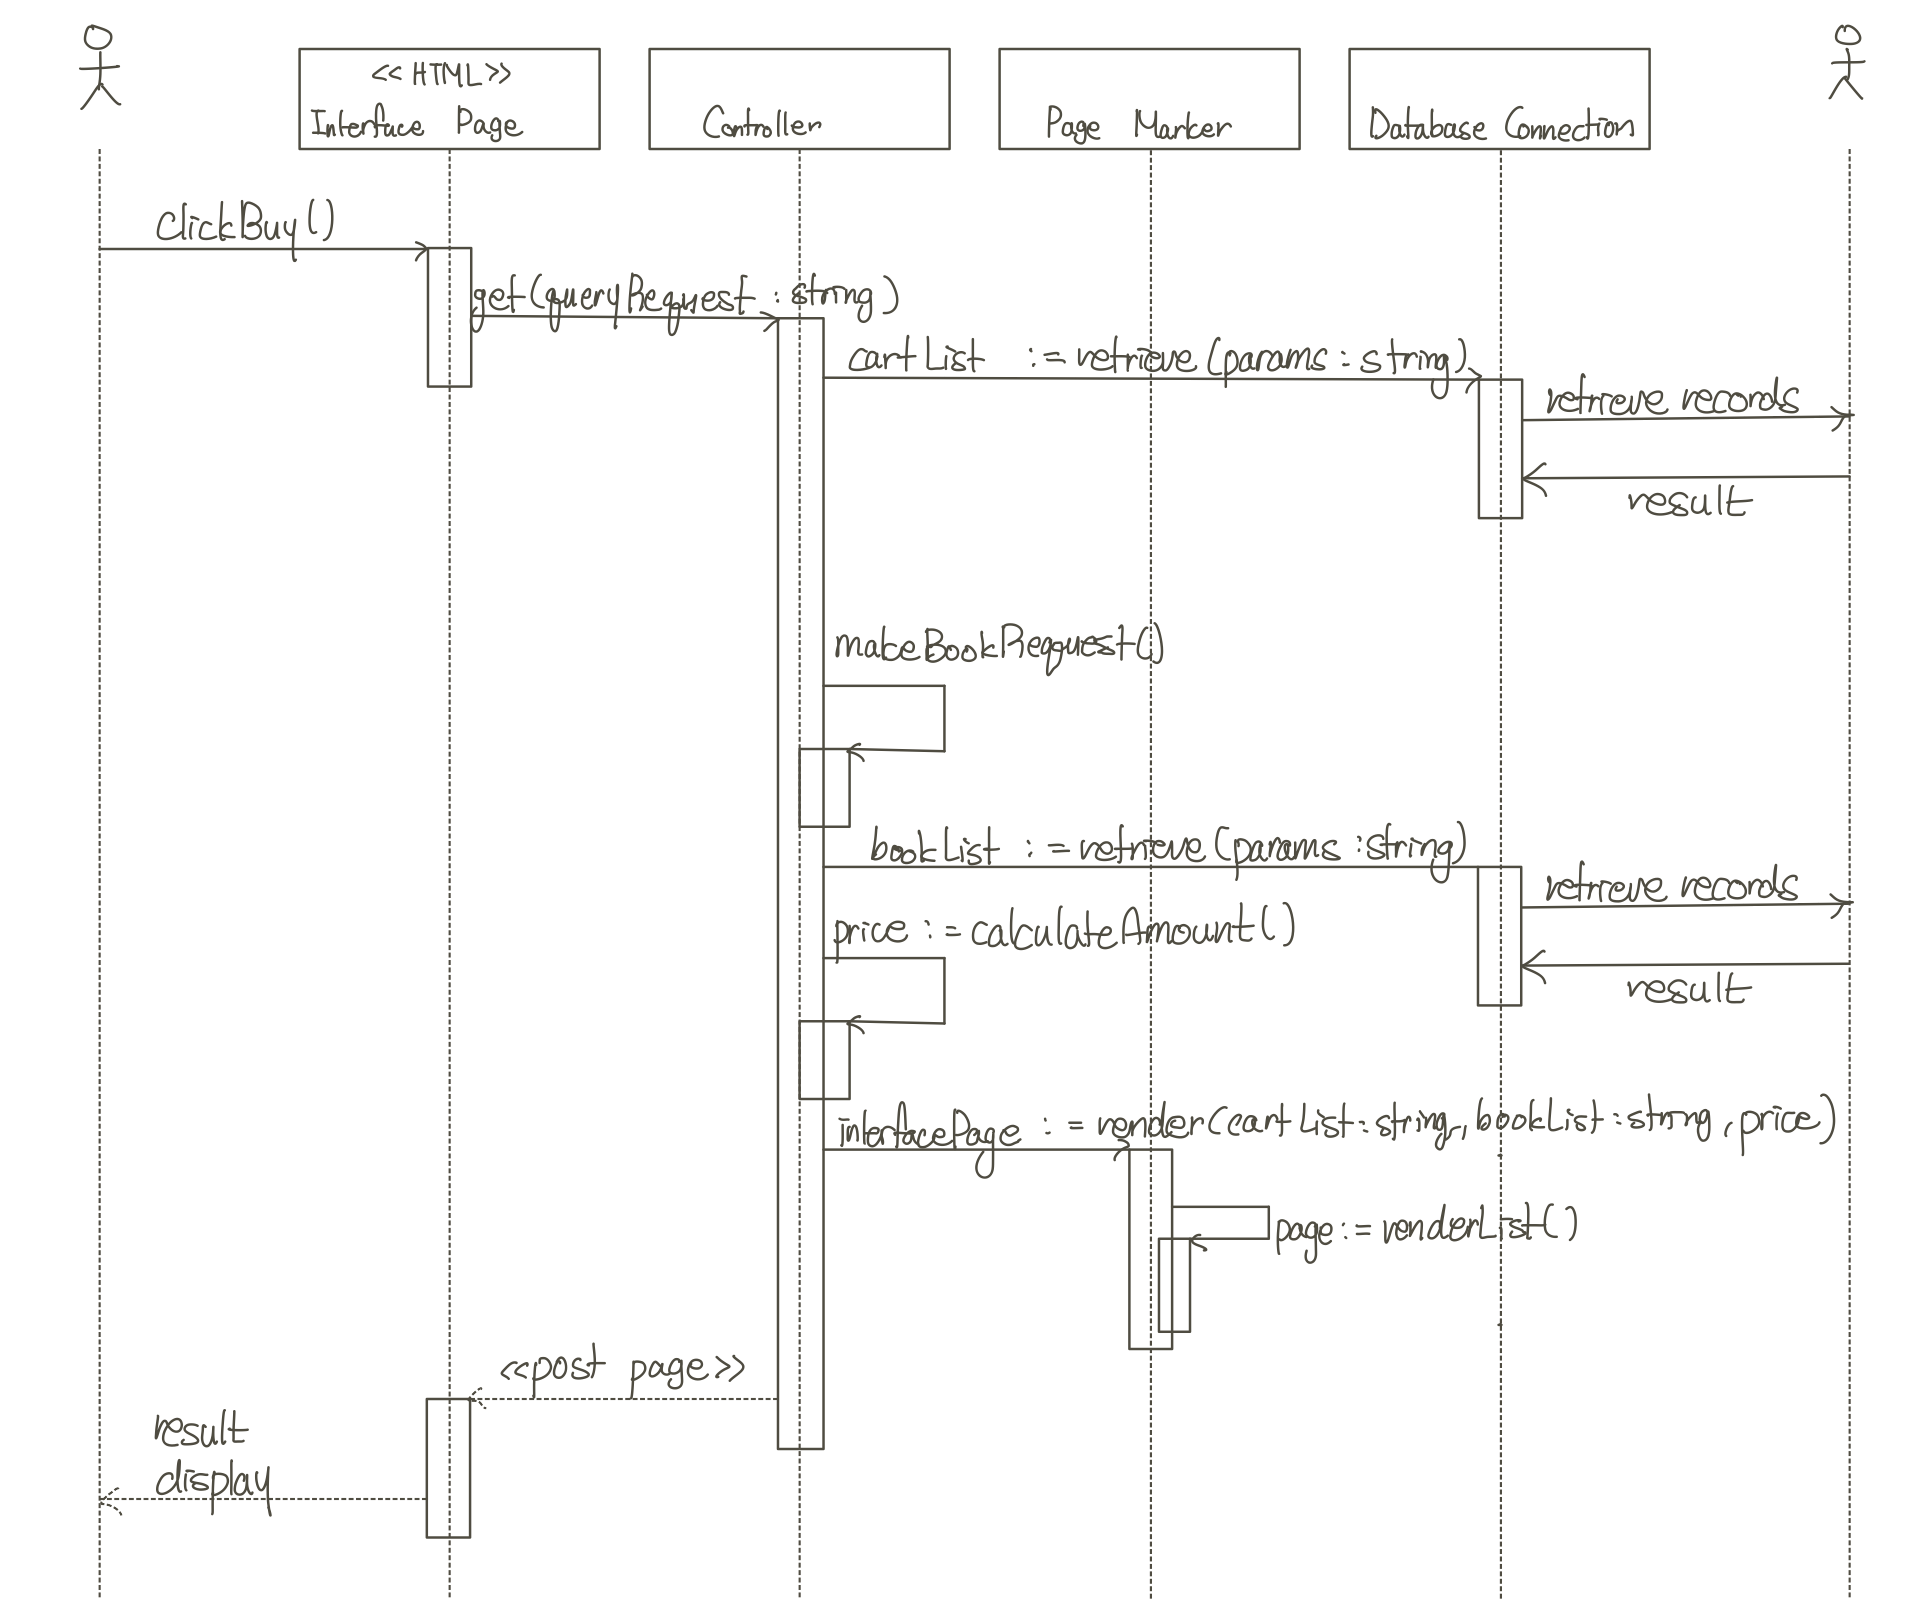 << HTML >>
Interface Page
Controller
Page Marker
Database Connection
clickBuy()
get(queryRequest : string)
cartList := retrieve(params : string)
retrieve records
result
makeBookRequest()
bookList := retrieve(params : string)
retrieve records
price := calculateAmount()
result
interfacePage := render(cartList : string, bookList : string, price)
page := renderList()
<<post page>>
result
display